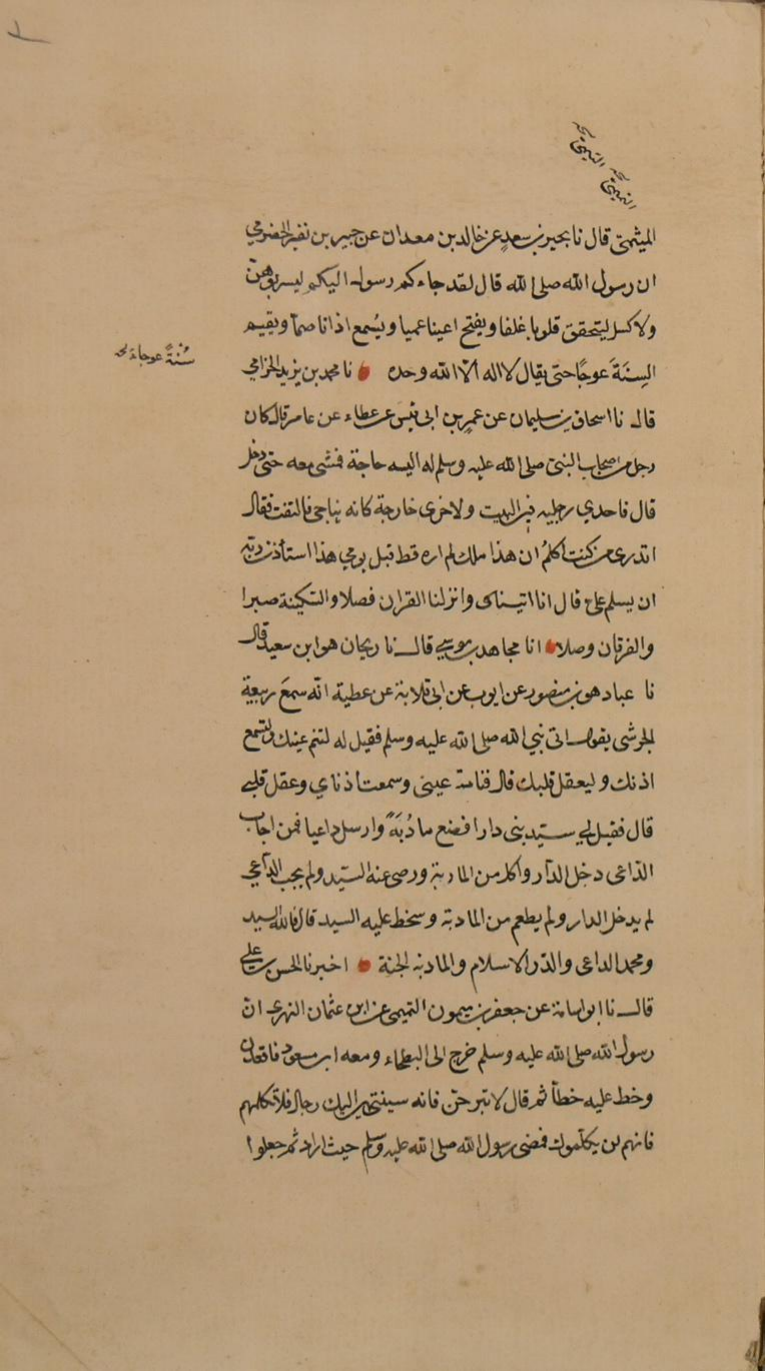 الميثمى قال نا بحير بن سعد عن خالد بن معدان عن جبير بن نفير الحضرمي
ان رسول الله صلى الله قال لقد جاءكم رسول اليكم ليس بوهن
ولا كسل ليتحقق قلوبا غلفا ويفتح اعينا عميا ويُسمع اذانا صماً ويقيم
السِنَةَ عوجًا حتى يقال لا اله الا الله وحده نا محمد بن يزيد الحزامي
سُنْةً عوجاء نخـ
قال نا اسحاق بن سليمان عن عمرو بن ابى قيس عن عطاء عن عامر قال كان
رجل من اصحاب النبى صلى الله عليه وسلم له اليه حاجة فمشى معه حتى دخل
قال فاحدي رجليه في البيت ولاخرى خارجة كانه يناجي فالتفت فقال
اتدرى من كنت اكلمُ ان هذا ملك لم اره قط قبل يومي هذا استأذن ربه
ان يسلم على قال انا اتيناك وانزلنا القران فصلا والسكينة صبرا
والفرقان وصلا انا مجاهد بن موسى قال نا ريحان هو ابن سعيد قال
نا عباد هو بن منصور عن ايوب عن ابى قلابة عن عطية انه سمعَ ربيعة
الجرشى يقول اتى نبي الله صلى الله عليه وسلم فقيل له لتنم عينك ولتسمع
اذنك وليعقل قلبك قال فنامت عينى وسمعت أذناي وعقل قلبي
قال فقيل لي سيد بنى دارا فصنع مادُبَةً وارسل داعيا فمن اجاب
الداعى دخل الدار واكل من المادبة ورضى عنه السيد ولم يجب الداعي
لم يدخل الدار ولم يطعم من المادبة وسخط عليه السيد قال فالله السيد
ومحمد الداعى والدر الاسلام والمادبة الجنة اخبرنا الحسن بن علي
قال نا ابو اسامة عن جعفر بن ميمون التميمى عن ابى عثمان النهرى ان
رسول الله صلى الله عليه وسلم خرج الى البطحاء ومعه ابن مسعود فاقعده
وخط عليه خطأ ثم قال لا تبرحن فانه سينتهى اليك رجال فلا تكلمهم
فانهم لن يكلموك فمضى رسول الله صلى الله عليه وسلم حيث اراد ثم جعلوا